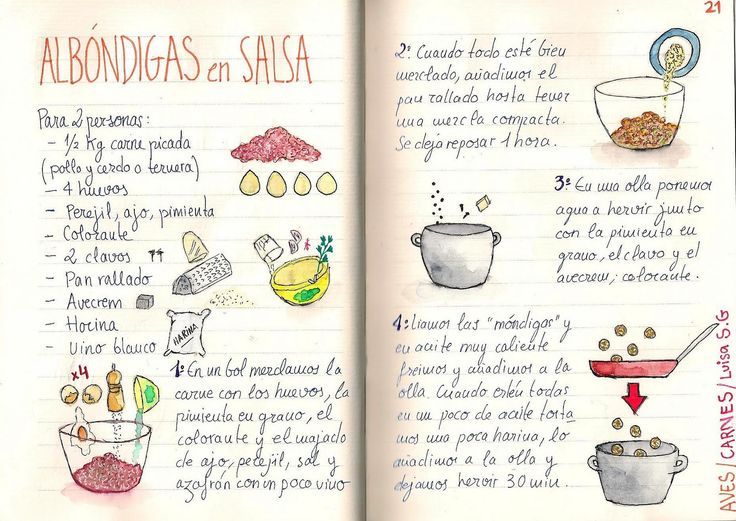 ALBÓNDIGAS en SALSA
Para 2 personas:
- 1/2 Kg carne picada
(pollo y cerdo o ternera)
- 4 huevos
- Perejil, ajo, pimienta
- Colorante
- 2 clavos
- Pan rallado
- Avecrem
- Harina
- Vino blanco
HARINA
x4
1º En un bol mezclamos la
carne con los huevos, la
pimienta en grano, el
colorante y el majado
de ajo, perejil, sal y
azafrán con un poco vino
21
2º Cuando todo esté bien
mezclado, añadimos el
pan rallado hasta tener
una mezcla compacta.
Se deja reposar 1 hora.
3º En una olla ponemos
agua a hervir junto
con la pimienta en
grano, el clavo y el
avecrem, colorante.
4º Liamos las "móndigas" y
en aceite muy caliente
freimos y añadimos a la
olla. Cuando estén todas
en un poco de aceite tosta
mos una poca harina, lo
añadimos a la olla y
dejamos hervir 30 min.
AVES/CARNES/Luisa S.G